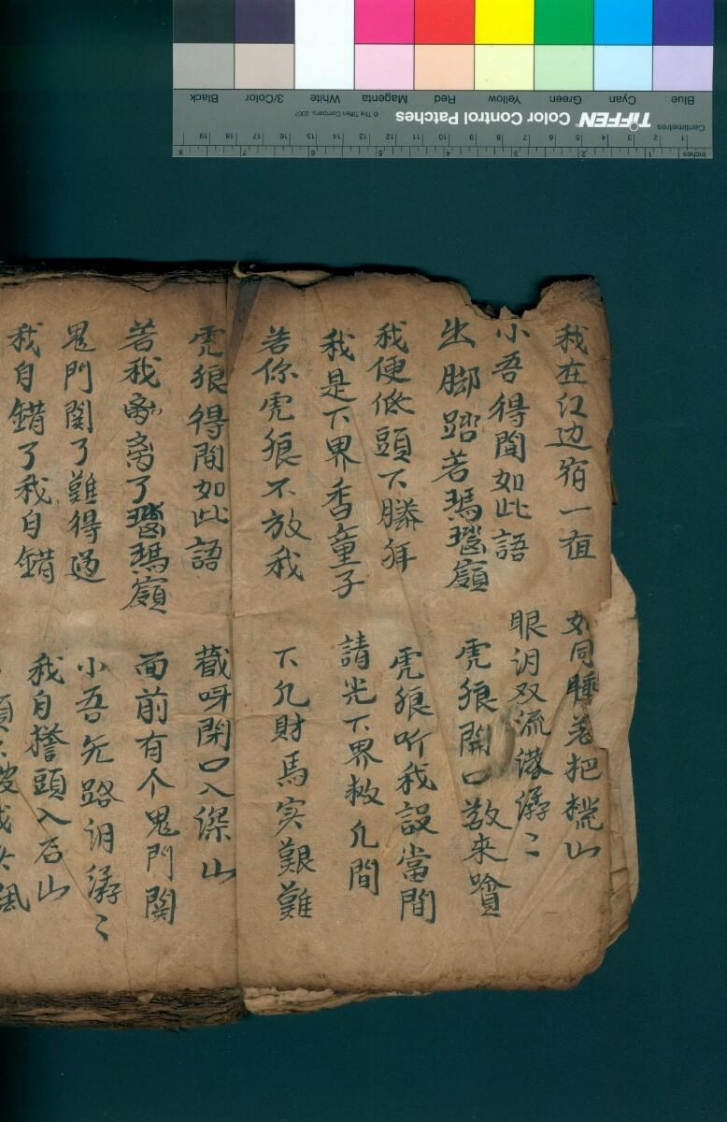 我在江边宿一宿 如同睡着把㮾山
小吾得聞如此語 眼泪双流漾潺〻
出脚踏着瑪瑙嶺 虎狼開口敢來飡
我便低頭下膝拜 虎狼听我說當間
我是下界香童子 請光下界救凡間
若你虎狼不放我 下凡財馬实艱難
虎狼得聞如此語 藏呀閉口入深山
若我离了瑙瑪嶺 面前有个鬼門関
鬼門関了難得過 小吾无路泪潺〻
我自錯了我自錯 我自撞頭入石山
Black 3/Color White Magenta Red Yellow Green Cyan Blue
© The Tiffen Company, 2007 TIFFEN Color Control Patches
Centimetres
Inches